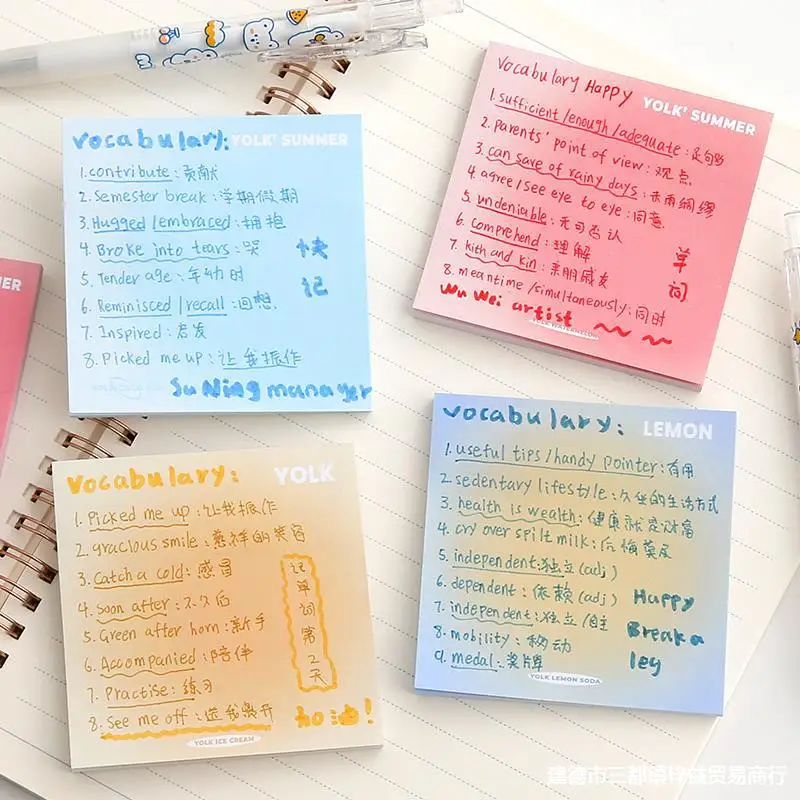 vocabulary: YOLK' SUMMER
1. contribute: 贡献
2. Semester break: 学期假期
3. Hugged / embraced: 拥抱
4. Broke into tears: 哭
5. Tender age: 年幼时
6. Reminisced / recall: 回想
7. Inspired: 启发
8. Picked me up: 让我振作
快
记
Su Ning manayer
vocabulary Happy YOLK' SUMMER
1. sufficient / enough / adequate: 足够
2. parents' point of view: 观点
3. can save of rainy days: 未雨绸缪
4. agree / see eye to eye: 同意
5. undeniable: 无可否认
6. comprehend: 理解
7. kith and kin: 亲朋戚友
8. meantime / simultaneously: 同时
单
词
Wu Wei artist
YOLK WATERMELON
vocabulary: YOLK
1. Picked me up: 让我振作
2. gracious smile: 慈祥的笑容
3. Catch a cold: 感冒
4. soon after: 不久后
5. Green after horn: 新手
6. Accompanied: 陪伴
7. Practise: 练习
8. See me off: 送我离开
记
单
词
第
2
天
加油!
YOLK ICE CREAM
vocabulary: LEMON
1. useful tips / handy pointer: 有用
2. sedentary lifestyle: 久坐的生活方式
3. health is wealth: 健康就是财富
4. cry over spilt milk: 后悔莫及
5. independent: 独立 (adj)
6. dependent: 依赖 (adj)
7. independent: 独立/自主
8. mobility: 移动
9. medal: 奖牌
Happy
Break a
leg
YOLK LEMON SODA
NER